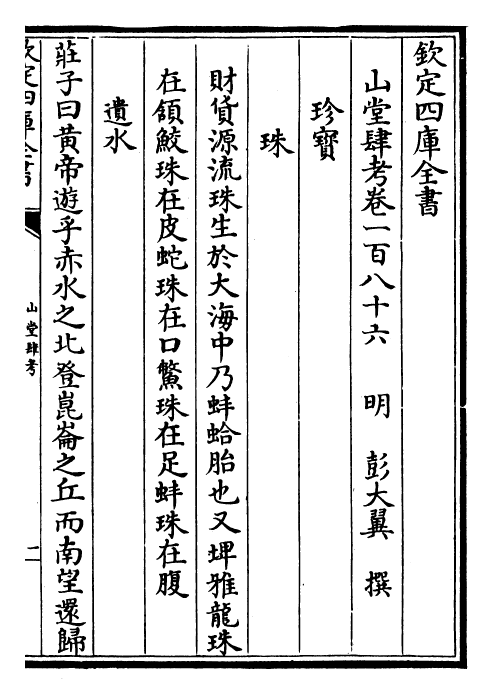 欽定四庫全書
山堂肆考卷一百八十六 明 彭大翼 撰
珍寶
珠
財貨源流珠生於大海中乃蚌蛤胎也又埤雅龍珠
在頷鮫珠在皮蛇珠在口鱉珠在足蚌珠在腹
遺水
莊子曰黄帝遊乎赤水之北登崑崙之丘而南望還歸
欽定四庫全書
山堂肆考
二